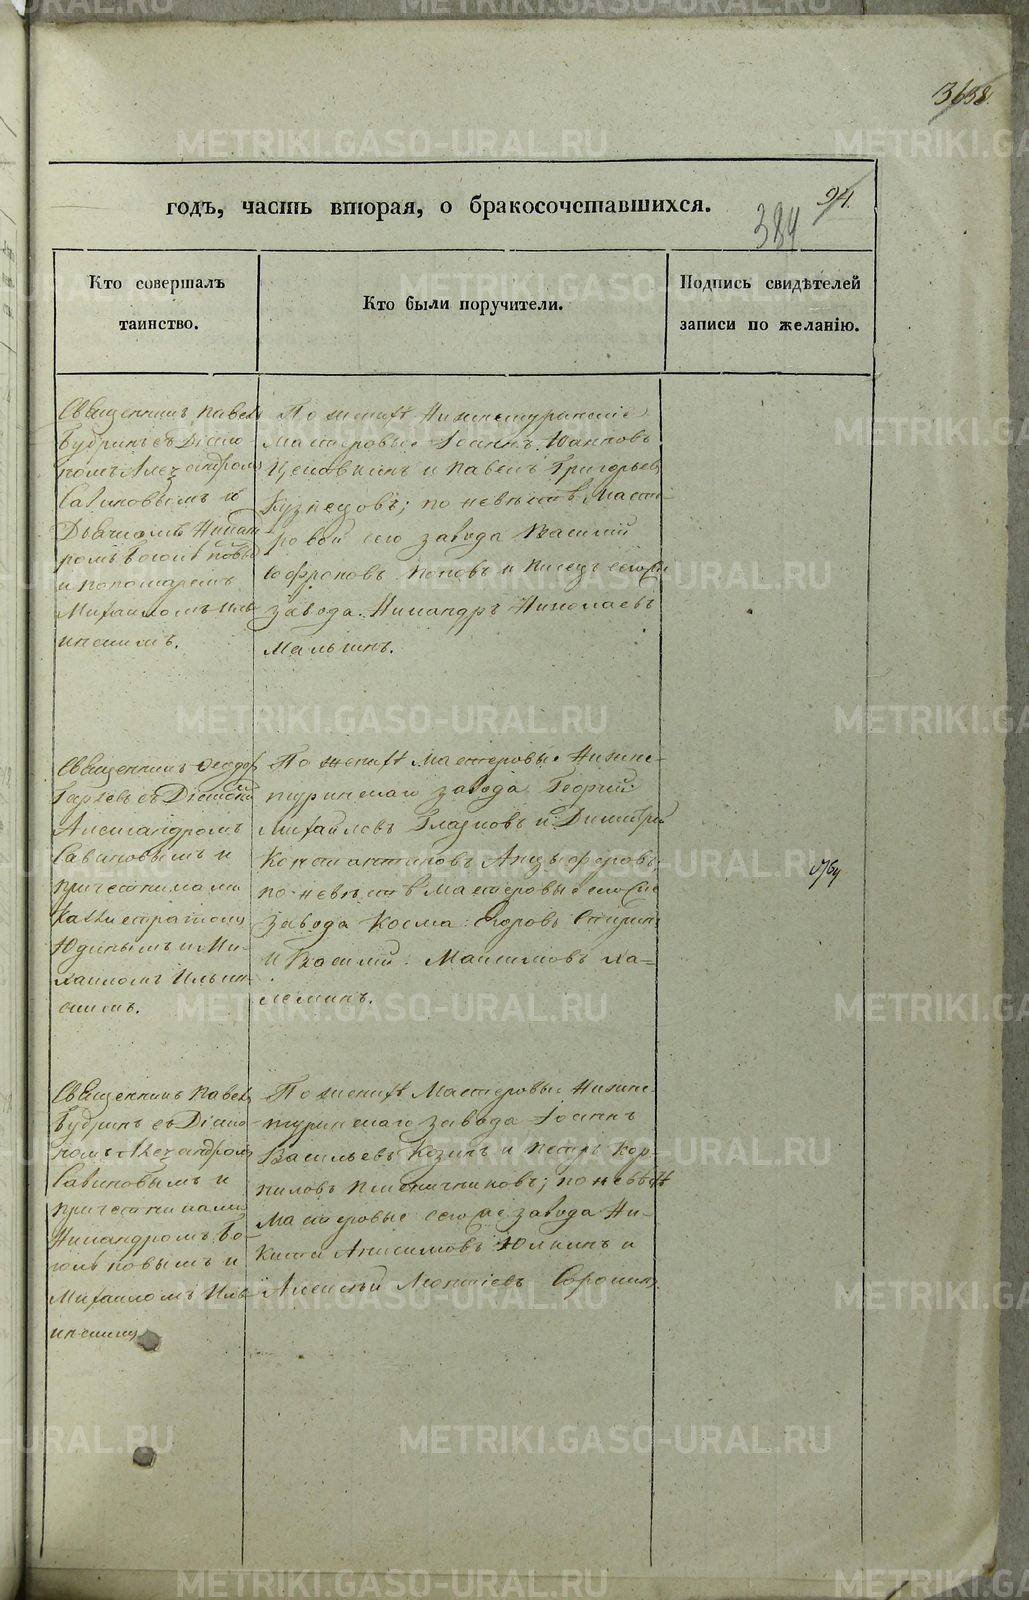 3638.
94.
384
годъ, часть вторая, о бракосочетавшихся.
Кто совершалъ
таинство.
Кто были поручители.
Подпись свидѣтелей
записи по желанію.
Священникъ Павелъ
Бубринъ съ Діако-
номъ Александромъ
Савиновымъ и
Дьячкомъ Никан-
дромъ
и пономаремъ
Михаиломъ Иль-
инскимъ.
По женихѣ Нижнетуринскіе
Мастеровые Іоаннъ Іоанновъ
и Павелъ Григорьевъ
Кузнецовъ; по невѣстѣ Масте-
ровой сего завода Василій
Софроновъ Поповъ и Писецъ сего же
завода Никандръ Николаевъ
Малыгинъ.
Священникъ Ѳеодоръ
съ Діакономъ
Александромъ
Савиновымъ и
причетниками
Каллистратомъ
Юдинымъ и Ми-
хаиломъ Ильин-
скимъ.
По женихѣ Мастеровые Нижне-
туринскаго завода Георгій
Михайловъ Глазковъ и Димитрій
Константиновъ Анцыферовъ;
по невѣстѣ Мастеровые сего же
завода Косма Егоровъ
и Василій Максимовъ Ха-
леминъ.
Священникъ Павелъ
Бубринъ съ Діако-
номъ Александромъ
Савиновымъ и
причетниками
Никандромъ Бо-
голѣповымъ и
Михаиломъ Иль-
инскимъ
По женихѣ Мастеровые Нижне-
туринскаго завода Іоаннъ
Васильевъ Козинъ и Петръ Кор-
ниловъ Пшеничниковъ; по невѣстѣ
Мастеровые сего же завода Ни-
кита Анисимовъ Юлкинъ и
Алексѣй Леонтіевъ Сорокинъ.
METRIKI.GASO-URAL.RU